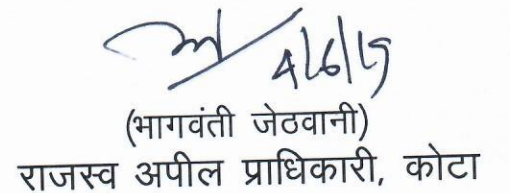 4/6/19
(भागवंती जेठवानी)
राजस्व अपील प्राधिकारी, कोटा